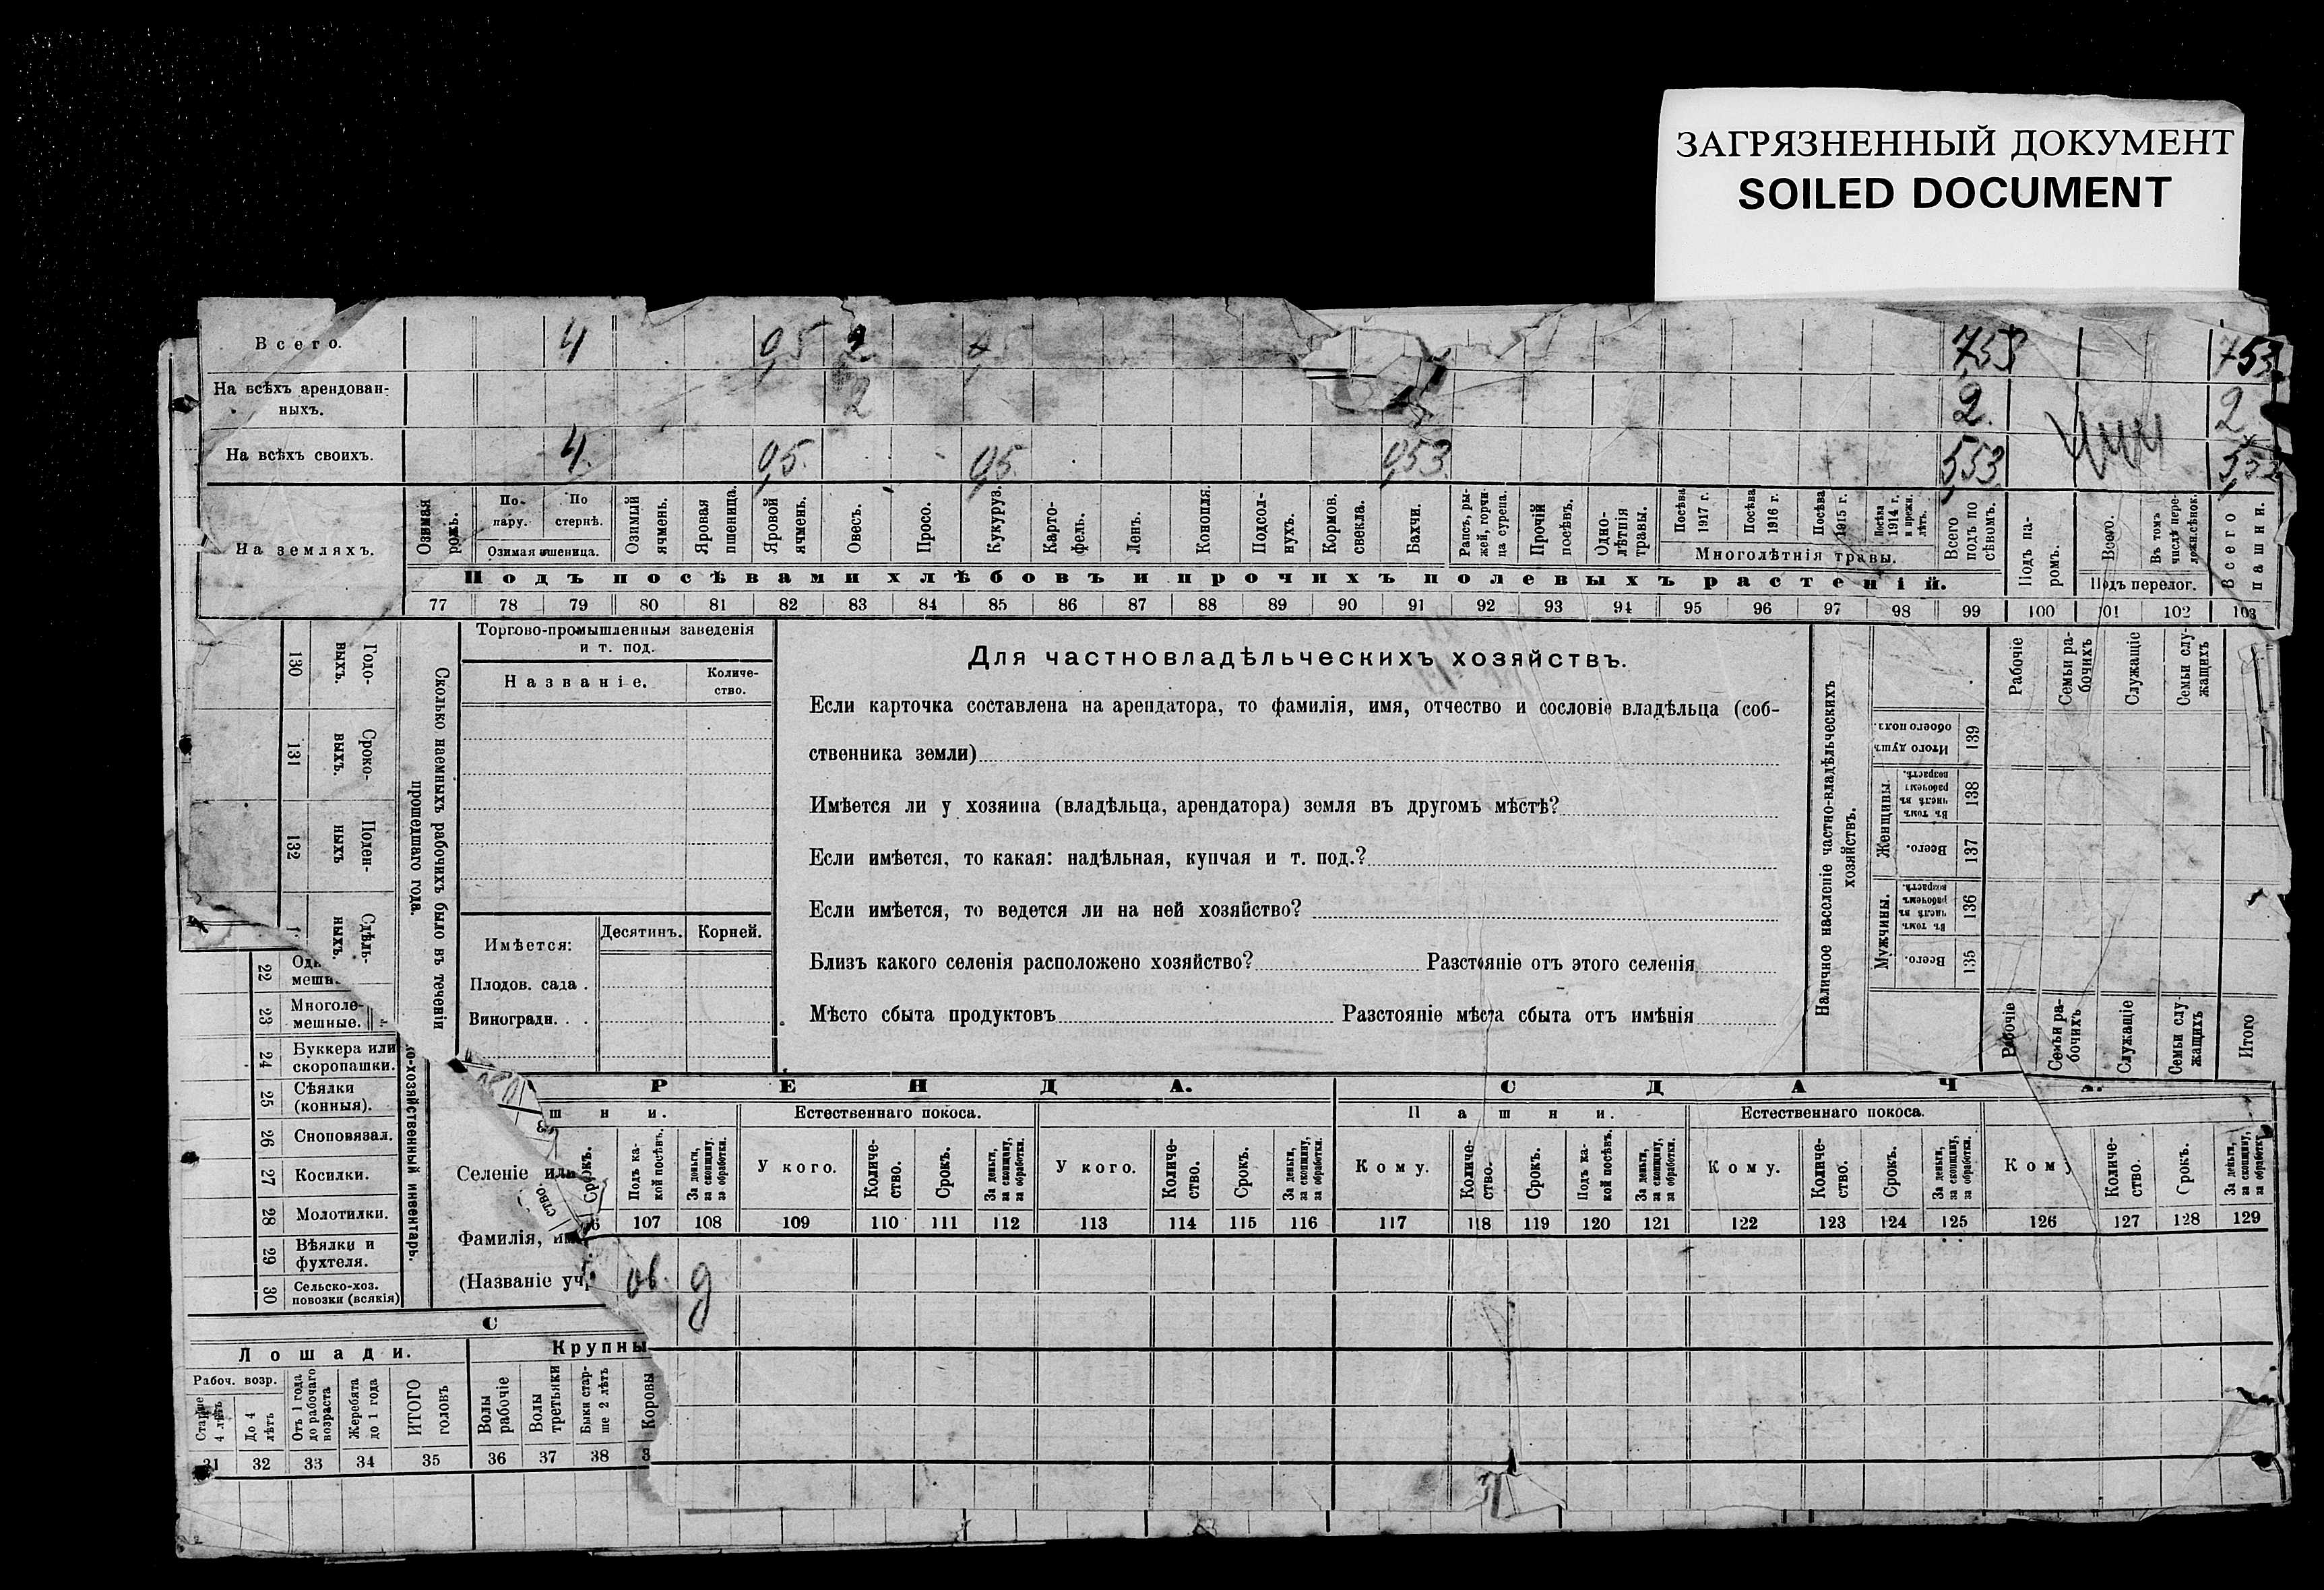 ЗАГРЯЗНЕННЫЙ ДОКУМЕНТ
SOILED DOCUMENT
Всего. 4 0,5 2 7,53 7,53
На всѣхъ арендован-
ныхъ. 2 2 2
На всѣхъ своихъ. 4 0,5 0,5 0,53 5,53
На земляхъ.
Озимая рожь.
По-
пару.
По
стернѣ.
Озимая пшеница.
Озимый ячмень.
Яровая пшеница.
Яровой ячмень.
Овесъ.
Просо.
Кукуруз.
Карто-
фель.
Ленъ.
Конопля.
Подсол-
нухъ.
Кормов. свекла.
Бахчи.
Рапсъ, ры-
жей, горчи-
ца сурепа.
Прочій посѣвъ.
Одно-
лѣтнія травы.
Посѣва 1917 г.
Посѣва 1916 г.
Посѣва 1915 г.
Посѣва 1914 г. и прежн. лѣтъ.
Многолѣтнія травы.
Всего подъ по
сѣвомъ.
Подъ па-
ромъ.
Всего.
Въ томъ числѣ пере-
ложн. сѣнок.
Подъ перелог.
Всего пашни.
Подъ посѣвами хлѣбовъ и прочихъ полевыхъ растеній.
77 78 79 80 81 82 83 84 85 86 87 88 89 90 91 92 93 94 95 96 97 98 99 100 101 102 103
Годо-
выхъ.
130
Сроко-
выхъ.
131
Поден-
ныхъ
132
Сдѣль-
ныхъ.
Сколько наемныхъ рабочихъ было въ теченіи
прошедшаго года.
Торгово-промышленныя заведенія
и т. под.
Названіе.
Количе-
ство.
Имѣется:
Десятинъ.
Корней.
Плодов. сада .
Виноградн. . .
Для частновладѣльческихъ хозяйствъ.
Если карточка составлена на арендатора, то фамилія, имя, отчество и сословіе владѣльца (соб-
ственника земли)
Имѣется ли у хозяина (владѣльца, арендатора) земля въ другомъ мѣстѣ?
Если имѣется, то какая: надѣльная, купчая и т. под.?
Если имѣется, то ведется ли на ней хозяйство?
Близъ какого селенія расположено хозяйство? Разстояніе отъ этого селенія
Мѣсто сбыта продуктовъ Разстояніе мѣста сбыта отъ имѣнія
Наличное населеніе частно-владѣльческихъ
хозяйствъ.
Рабочіе
Семьи ра-
бочихъ
Служащіе
Семьи слу-
жащихъ
Итого душъ обоего пола.
139
Женщины.
Въ томъ числѣ въ рабочемъ возрастѣ.
138
Всего.
137
Мужчины.
Въ томъ числѣ въ рабочемъ возрастѣ.
136
Всего.
135
Рабочіе
Семьи ра-
бочихъ
Служащіе
Семьи слу
жащихъ
Итого
22
23 Многоле-
мешные.
24 Буккера или
скоропашки.
25 Сѣялки
(конныя).
26 Сноповязал.
27 Косилки.
28 Молотилки.
29 Вѣялки и
фухтеля.
30 Сельско-хоз.
повозки (всякія)
о-хозяйственный инвентарь.
Селеніе или
Фамилія,
(Названіе
РЕНДА.
шни.
Срокъ.
Подъ ка-
кой посѣвъ.
За деньги,
за скопщину,
за обработки.
107 108
ов. д
Естественнаго покоса.
У кого.
Количе-
ство.
Срокъ.
За деньги,
за скопщину,
за обработки.
109 110 111 112
У кого.
Количе-
ство.
Срокъ.
За деньги,
за скопщину,
за обработки.
113 114 115 116
СДАЧА.
Пашни.
Кому.
Количе-
ство.
Срокъ.
Подъ ка-
кой посѣвъ.
За деньги,
за скопщину,
за обработки.
117 118 119 120 121
Естественнаго покоса.
Кому.
Количе-
ство.
Срокъ.
За деньги,
за скопщину,
за обработки.
122 123 124 125
Кому
Количе-
ство.
Срокъ.
За деньги,
за скопщину,
за обработки
126 127 128 129
С
Лошади.
Рабоч. возр.
Старше 4 лѣтъ
До 4 лѣтъ
Отъ 1 года
до рабочаго
возраста
Жеребята
до 1 года
ИТОГО головъ
31 32 33 34 35
Крупны
Волы рабочіе
Волы третьяки
Быки стар-
ше 2 лѣтъ
Коровы
36 37 38